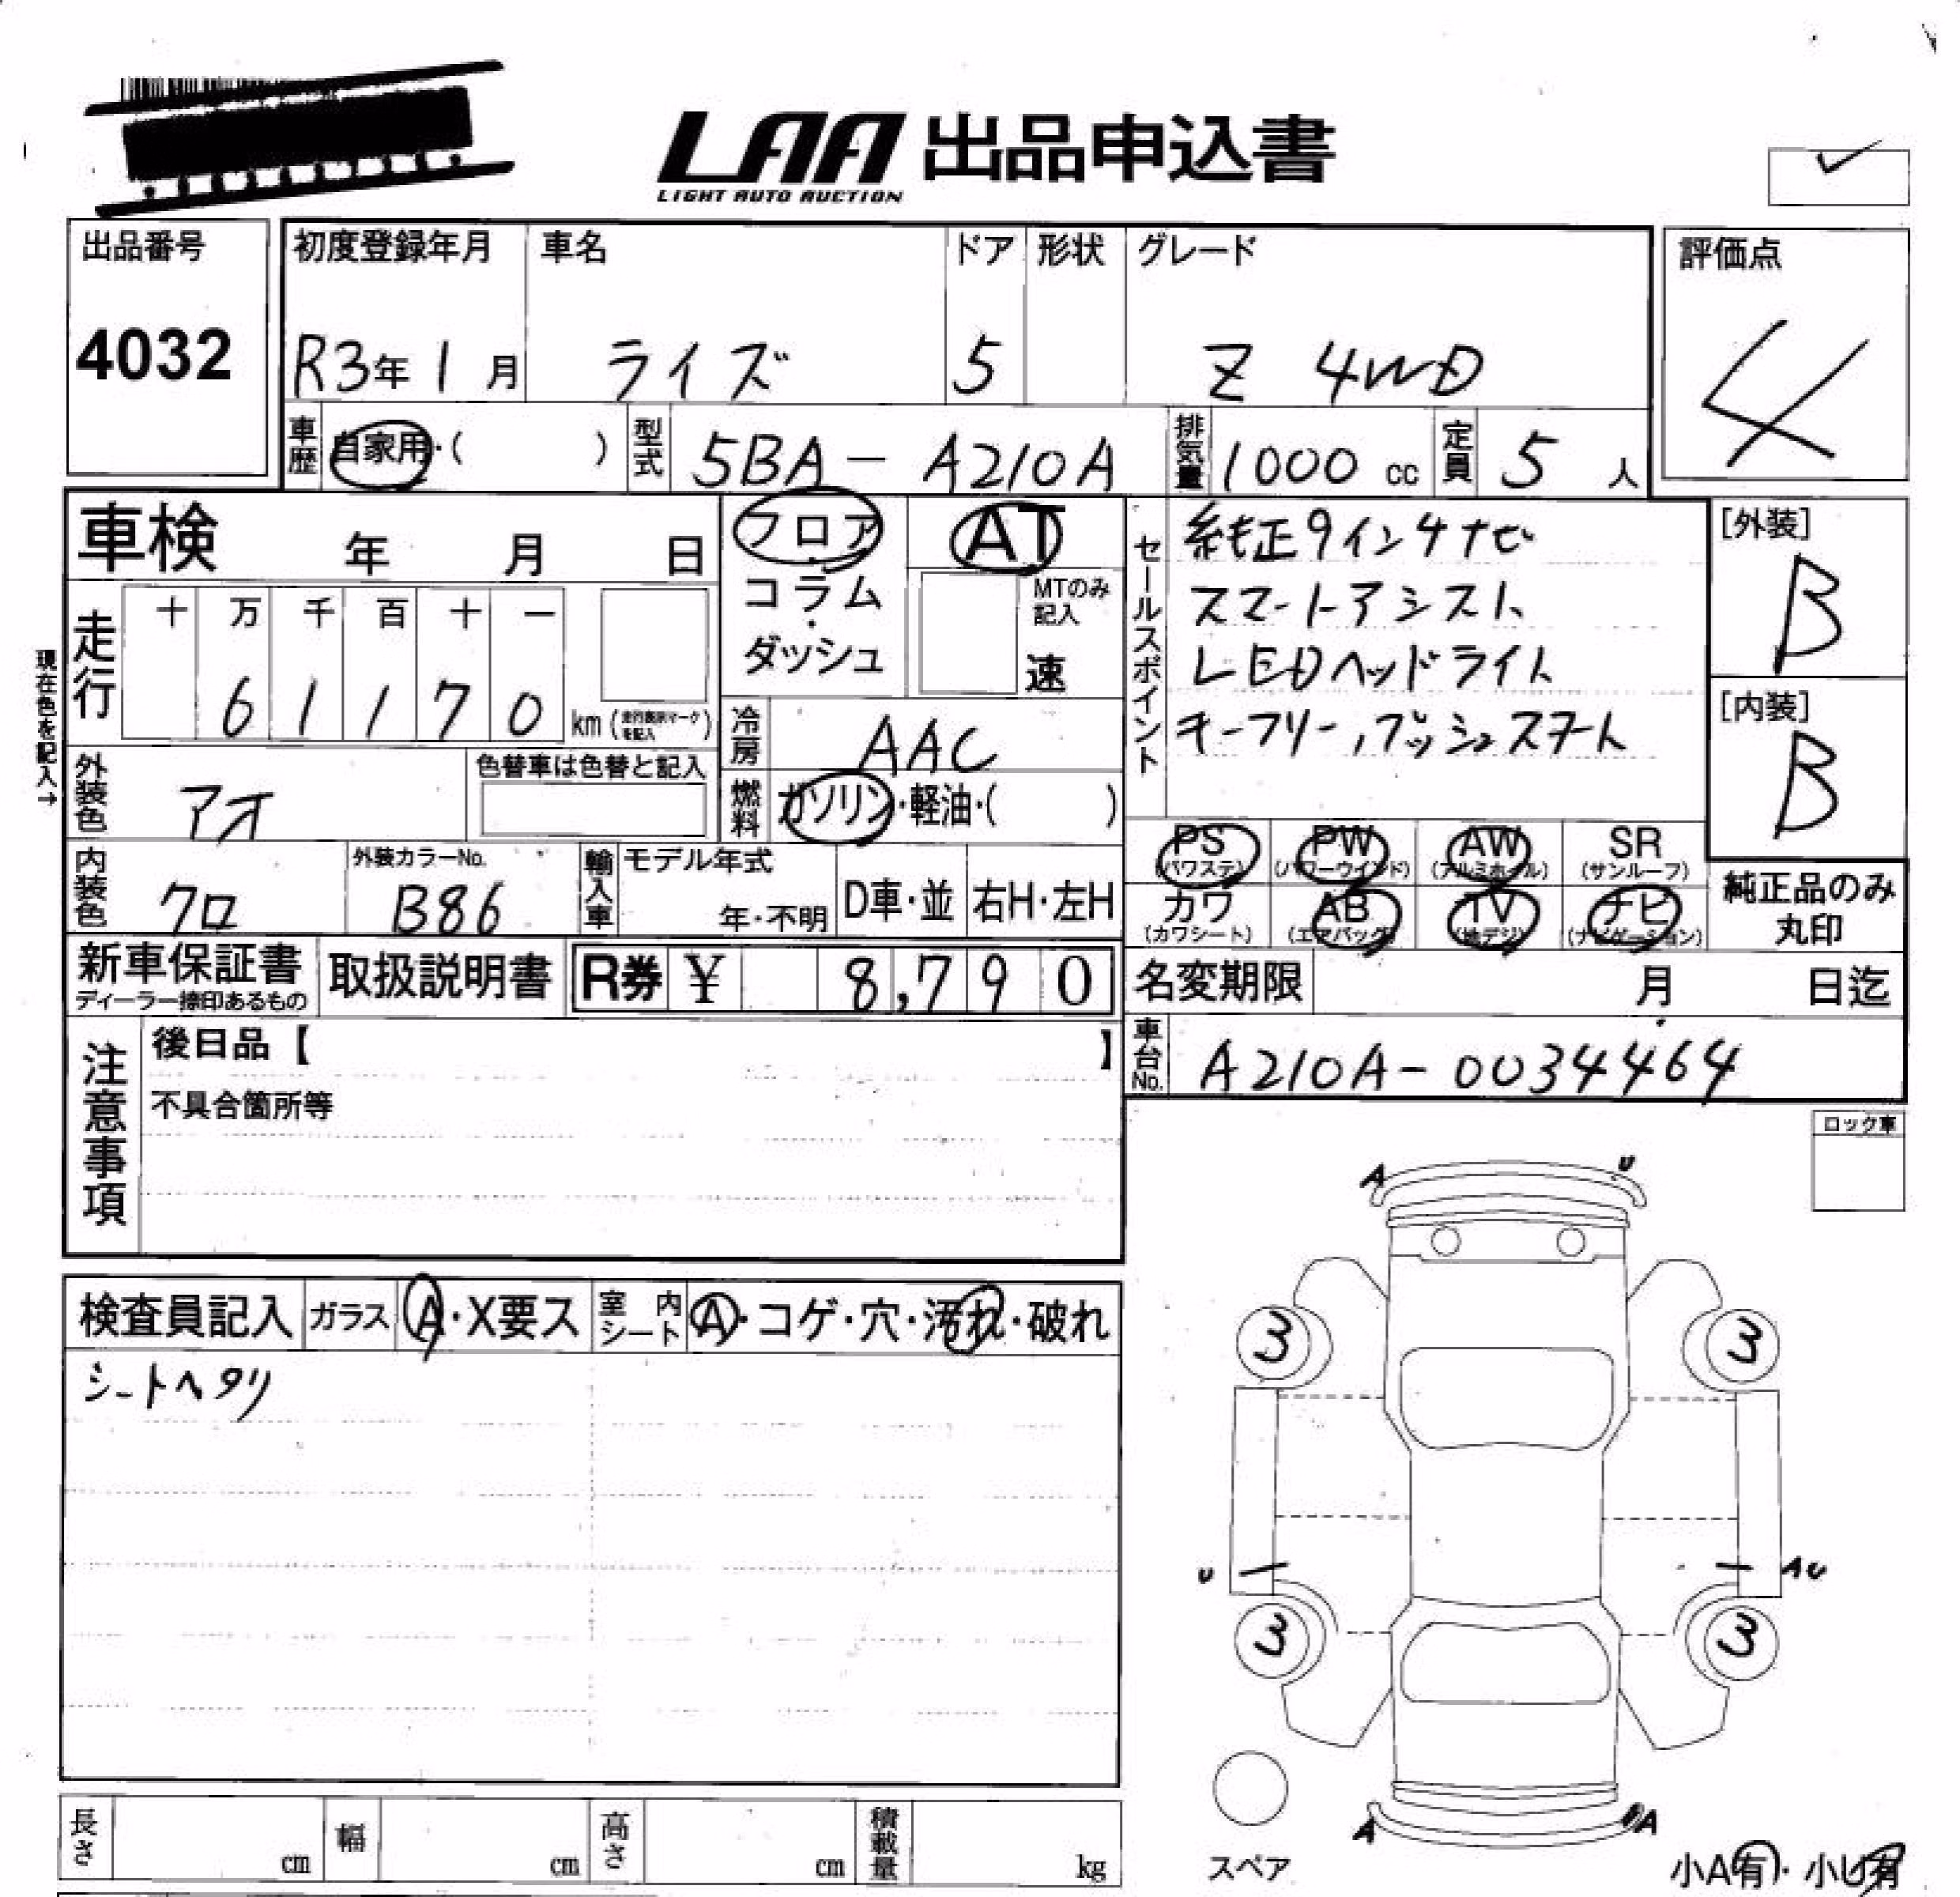 LAA 出品申込書
LIGHT AUTO AUCTION
出品番号
4032
初度登録年月
R3年 1月
車名
ライズ
ドア
5
形状
グレード
Z 4WD
評価点
4
車歴
自家用・( )
型式
5BA-A210A
排気量
1000 cc
定員
5 人
車検 年 月 日
フロア
コラム
・
ダッシュ
AT
MTのみ
記入
速
現在色を記入→
走行
十 万 千 百 十 一
6 1 1 7 0 km (走行表示マークを記入)
冷房
AAC
外装色
アオ
色替車は色替と記入
燃料
ガソリン・軽油・( )
内装色
クロ
外装カラーNo.
B86
輸入車
モデル年式
年・不明
D車・並
右H・左H
セールスポイント
純正9インチナビ
スマートアシスト
LEDヘッドライト
キーフリー,プッシュスタート
[外装]
B
[内装]
B
PS
(パワステ)
PW
(パワーウインド)
AW
(アルミホイル)
SR
(サンルーフ)
カワ
(カワシート)
AB
(エアバック)
TV
(地デジ)
ナビ
(ナビゲーション)
純正品のみ
丸印
新車保証書
ディーラー捺印あるもの
取扱説明書
R券 ¥ 8,790
名変期限 月 日迄
注意事項
後日品【 】
不具合箇所等
車台No.
A210A-0034464
ロック車
検査員記入
ガラス
A・X要ス
室内シート
A・コゲ・穴・汚れ・破れ
シートヘタリ
A U
3 3
U AU
3 3
A UA
スペア
小A有・小U有
長さ cm
幅 cm
高さ cm
積載量 kg